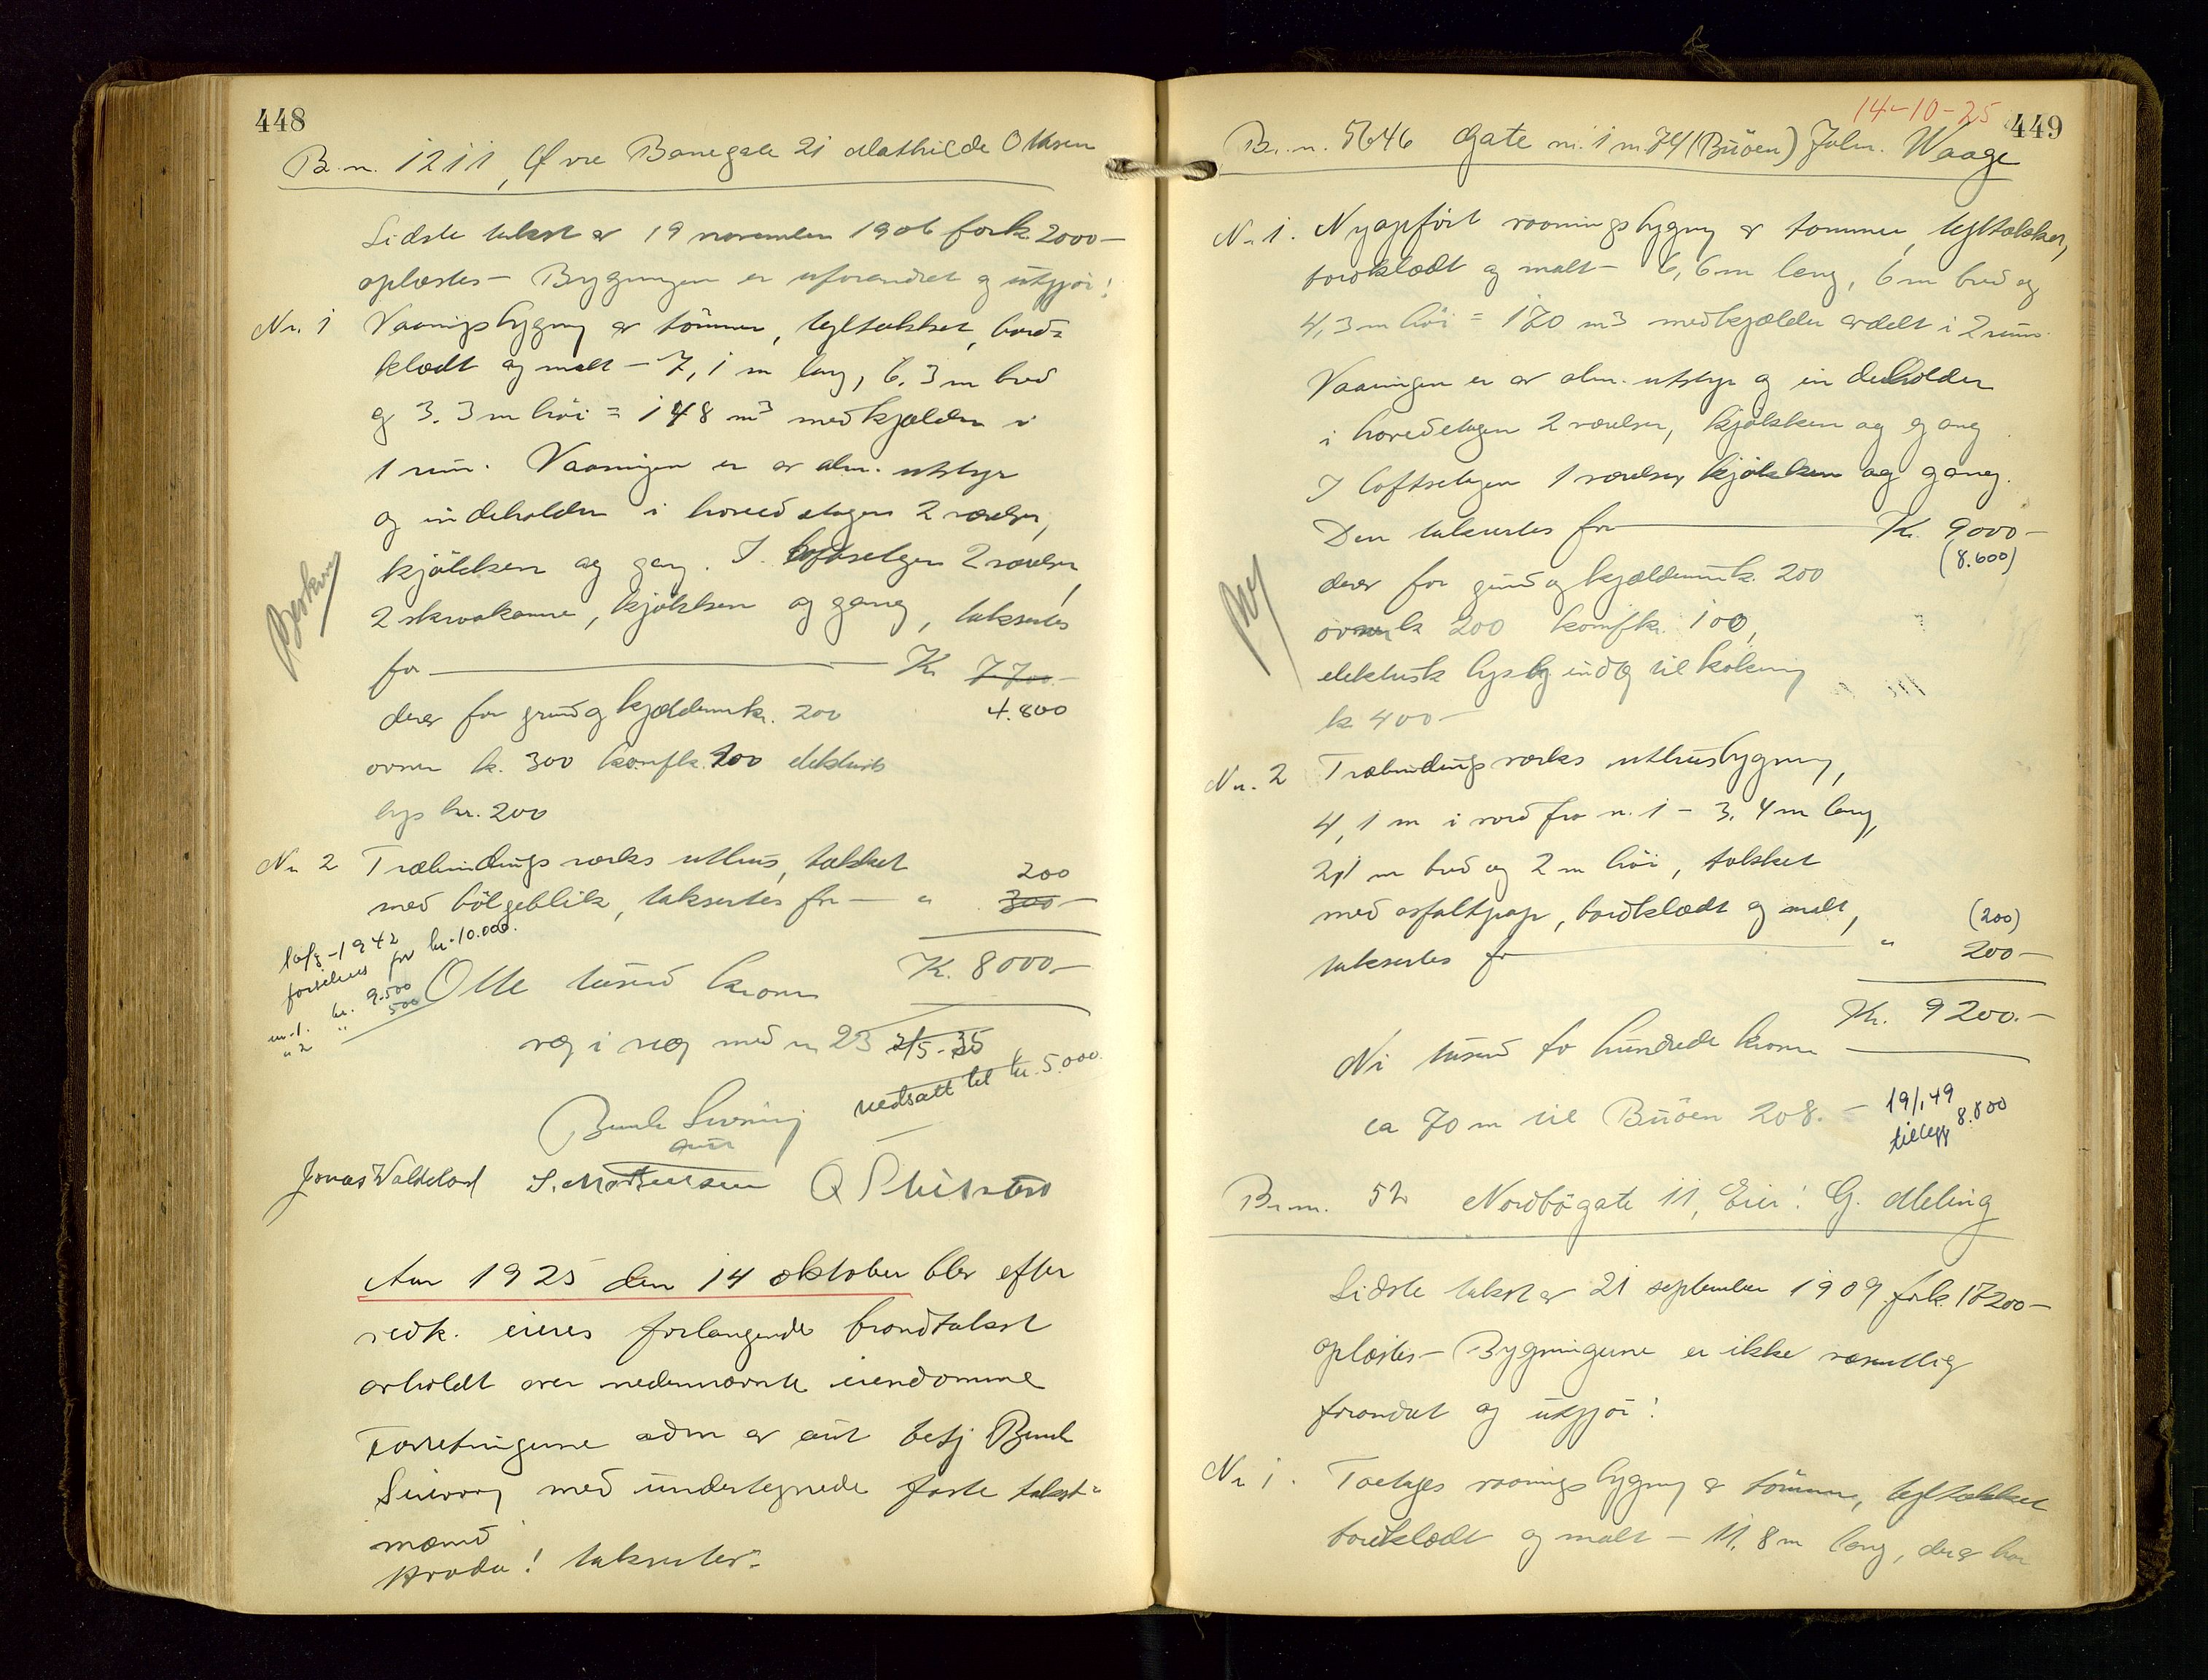 448
B.n. 1211, Øvre Banegate 21 Mathilde Ottesen
Sidste takst av 19 november 1906 for k. 2000-
oplæstes - Bygningen er uforandret og utgjør:
Nr. 1 Vaaningsbygning av tømmer, tegltækket, bord=
klædt og malt - 7,1 m lang, 6.3 m bred
og 3.3 m høi = 148 m3 med kjælder i
1 rum. Vaaningen er av alm. utstyr
og indeholder i hovedetagen 2 værelser,
kjøkken og gang. I loftsetagen 2 værelser,
2 skraakamre, kjøkken og gang, taksertes
for — Kr 7700.-
4.800
derav for grund og kjældermur kr. 200
ovner k. 300 komf k. 100 elektrisk
lys kr. 200
Nr 2 Træbindingsverks uthus, tækket
med bølgeblik, taksertes for — " 300-
200
1942
forsikres for kr. 10.000.
nr. 1. kr. 9.500
" 2 " 500
Otte tusend kroner K. 8000.-
væg i væg med n 23 2/5-35
nedsatt til kr. 5.000.
Jonas Valdeland S. Mortensen
Aar 1925 den 14 oktober blev efter
vedk. eieres forlangende brandtakst
avholdt over nedennævnte eiendomme
Forretningerne adm av aut betj Bernh
Sivertsen med undertegnede faste takst=
mænd
Hvoda! taksertes:
14-10-25 449
Br.n. 5646 Gate nr. 1 nr. 74 (Buøen) Johs. Waage
Nr 1. Nyopført vaaningsbygning av tømmer, tegltækket,
bordklædt og malt - 6,6 m lang, 6 m bred og
4,3 m høi = 170 m3 med kjælder avdelt i 2 rum.
Vaaningen er av alm. utstyr og indeholder
i hovedetagen 2 værelser, kjøkken og gang
I loftsetagen 1 værelse, kjøkken og gang.
Den taksertes for — Kr. 9000-
(8.600)
Ny
derav for grund og kjældermur k. 200
ovner k 200 komf kr. 100,
elektrisk lys og indlæg til kokning
k 400-
Nr. 2 Træbindingsverks uthusbygning,
4,1 m i nord fra n. 1 - 3,4 m lang,
2,1 m bred og 2 m høi, tækket
med asfaltpap, bordklædt og malt,
(200)
taksertes for — " 200-
Kr. 9200.-
Ni tusend to hundrede kroner
ca 70 m til Buøen 208. -
19/1 49
tillegg 8.800
Br.nr. 52 Nordbøgate 11, Eier: G. Meling
Sidste takst av 21 september 1909 for k. 17200-
oplæstes - Bygningerne er ikke væsentlig
forandret og utgjør:
Nr 1. Toetages vaaningsbygning av tømmer, tegltækket
bordklædt og malt - 11,8 m lang, derav har